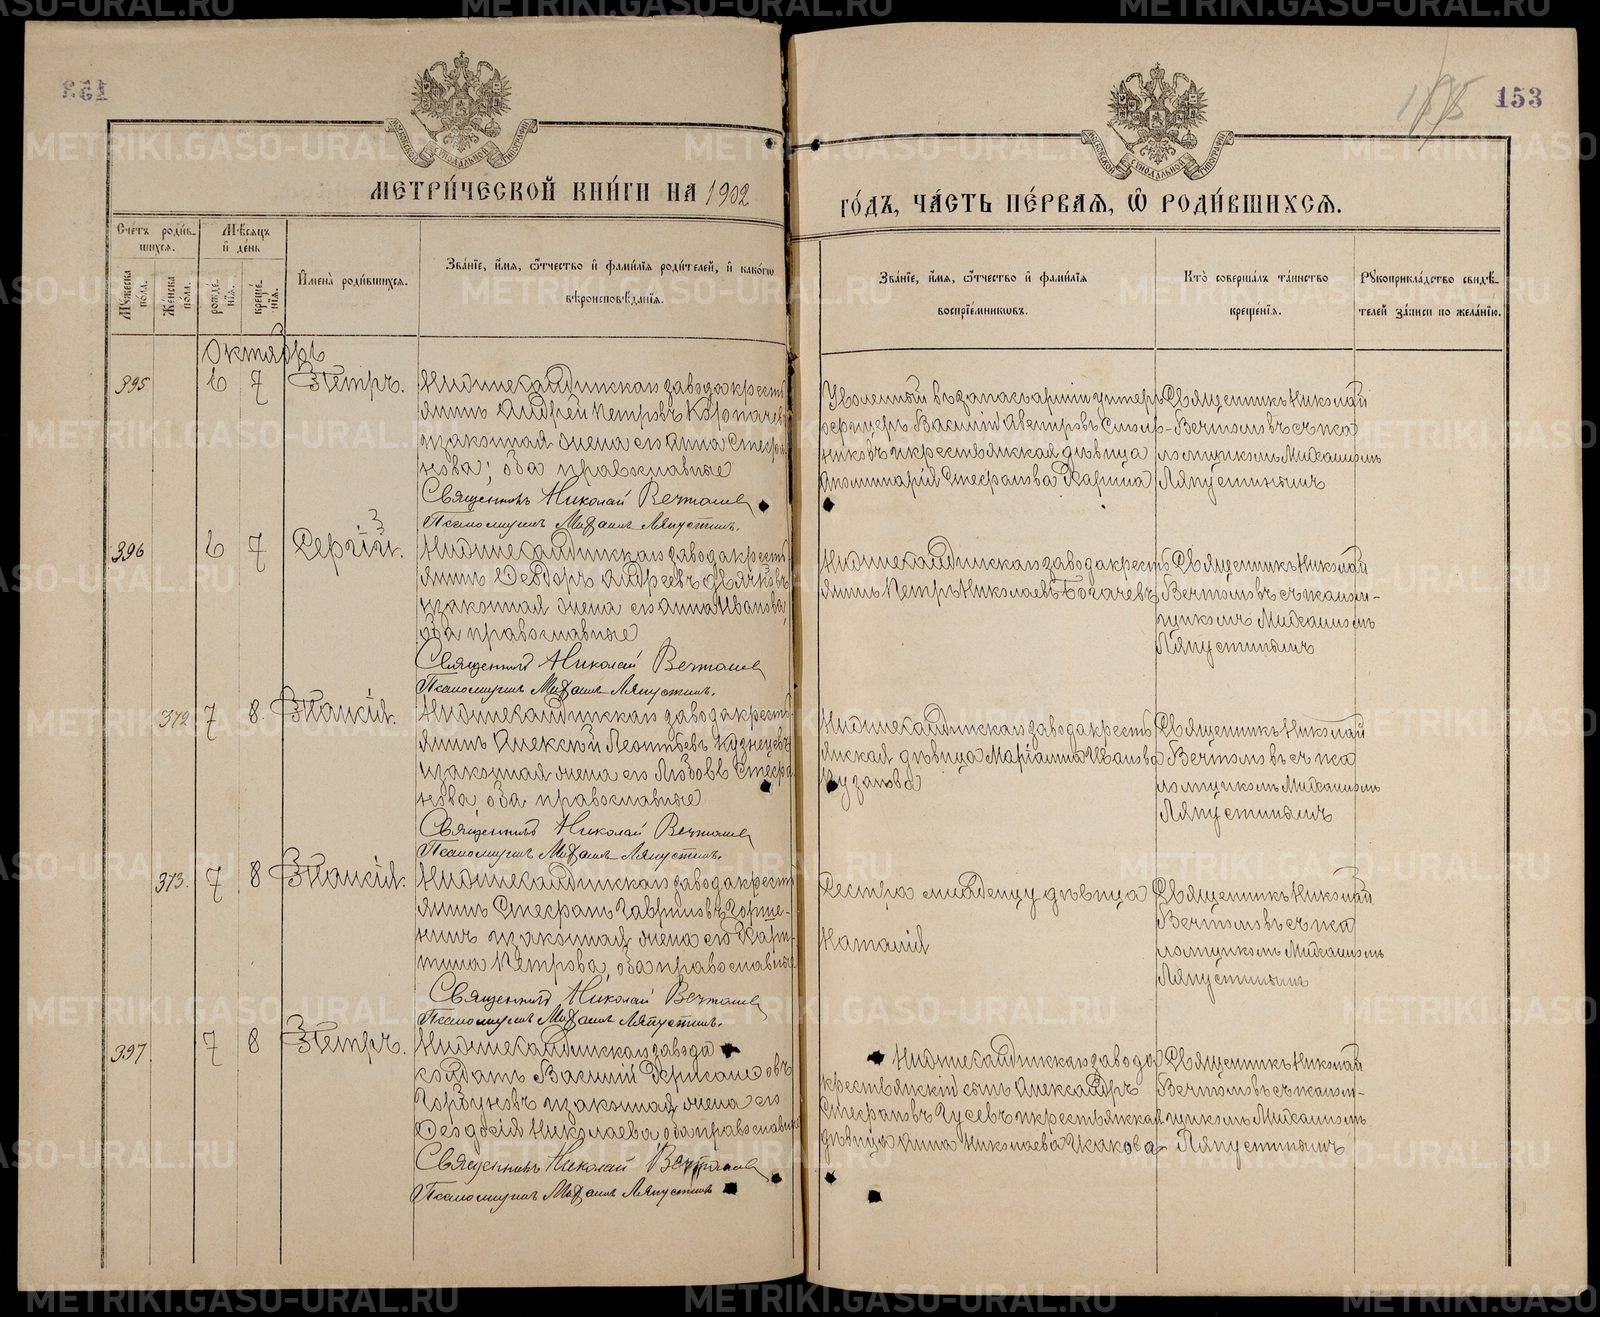 153
МЕТРИ́ЧЕСКОЙ КНИ́ГИ НА 1902
Сче́тъ роди́в-
шихся.
Мѣсяцъ
и҆ де́нь
Му́жеска
по́ла.
Же́нска
по́ла.
рожде́-
нїѧ.
креще́-
нїѧ.
И҆мена̀ роди́вшихсѧ.
Зва́нїе, и҆́мѧ, ѻ҆́тчество и҆ фами́лїѧ роди́телей, и҆ како́гѡ
вѣроисповѣ́данїѧ.
Октябрь
395 6 7 Петръ.
Нижнесалдинскаго завода кресть
янинъ Андрей Петровъ
законная жена его Анна Стефа
нова; оба православные
Священникъ Николай
Псаломщикъ Михаилъ Ляпустинъ.
396 6 7 Сергій.
Нижнесалдинскаго завода кресть
янинъ Ѳеодоръ Андреевъ
законная жена его Анна Иванова,
оба православные
Священникъ Николай
Псаломщикъ Михаилъ Ляпустинъ.
372 7 8. Таисія.
Нижнесалдинскаго завода кресть
янинъ Алексѣй Леонтьевъ Кузнецовъ
законная жена его Любовь Стефа
нова, оба православные
Священникъ Николай
Псаломщикъ Михаилъ Ляпустинъ.
373. 7 8 Таисія.
Нижнесалдинскаго завода кресть
янинъ Стефанъ Гавриловъ
законная жена его
Петрова, оба православные
Священникъ Николай
Псаломщикъ Михаилъ Ляпустинъ.
397 7 8 Петръ.
Нижнесалдинскаго завода
солдатъ Василій
Горбуновъ законная жена его
Ѳеодосія Николаева, оба православные
Священникъ Николай
Псаломщикъ Михаилъ Ляпустинъ
153
го́дъ, ча́сть пе́рваѧ, ѡ҆ роди́вшихсѧ.
Зва́нїе, и҆́мѧ, ѻ҆́тчество и҆ фами́лїѧ
воспрїе́мникѡвъ.
Кто̀ соверша́лъ та́инство
креще́нїѧ.
Рꙋкоприкла́дство свидѣ́-
телей за́писи по жела́нїю.
Уволенный въ запасъ арміи унтеръ
офицеръ Василій
крестьянская дѣвица
Стефанова
Священникъ Николай
съ пса
ломщикомъ Михаиломъ
Ляпустинымъ
Нижнесалдинскаго завода кресть
янинъ Петръ Николаевъ Богачевъ
Священникъ Николай
съ псалом-
щикомъ Михаиломъ
Ляпустинымъ
Нижнесалдинскаго завода кресть
янская дѣвица Маріанна Иванова
Священникъ Николай
съ пса
ломщикомъ Михаиломъ
Ляпустинымъ
Сестра младенцу дѣвица
Наталія
Священникъ Николай
съ пса
ломщикомъ Михаиломъ
Ляпустинымъ
Нижнесалдинскаго завода
крестьянскій сынъ Александръ
Стефановъ Гусевъ и крестьянская
дѣвица Анна Николаева Исакова
Священникъ Николай
съ псалом-
щикомъ Михаиломъ
Ляпустинымъ
METRIKI.GASO-URAL.RU